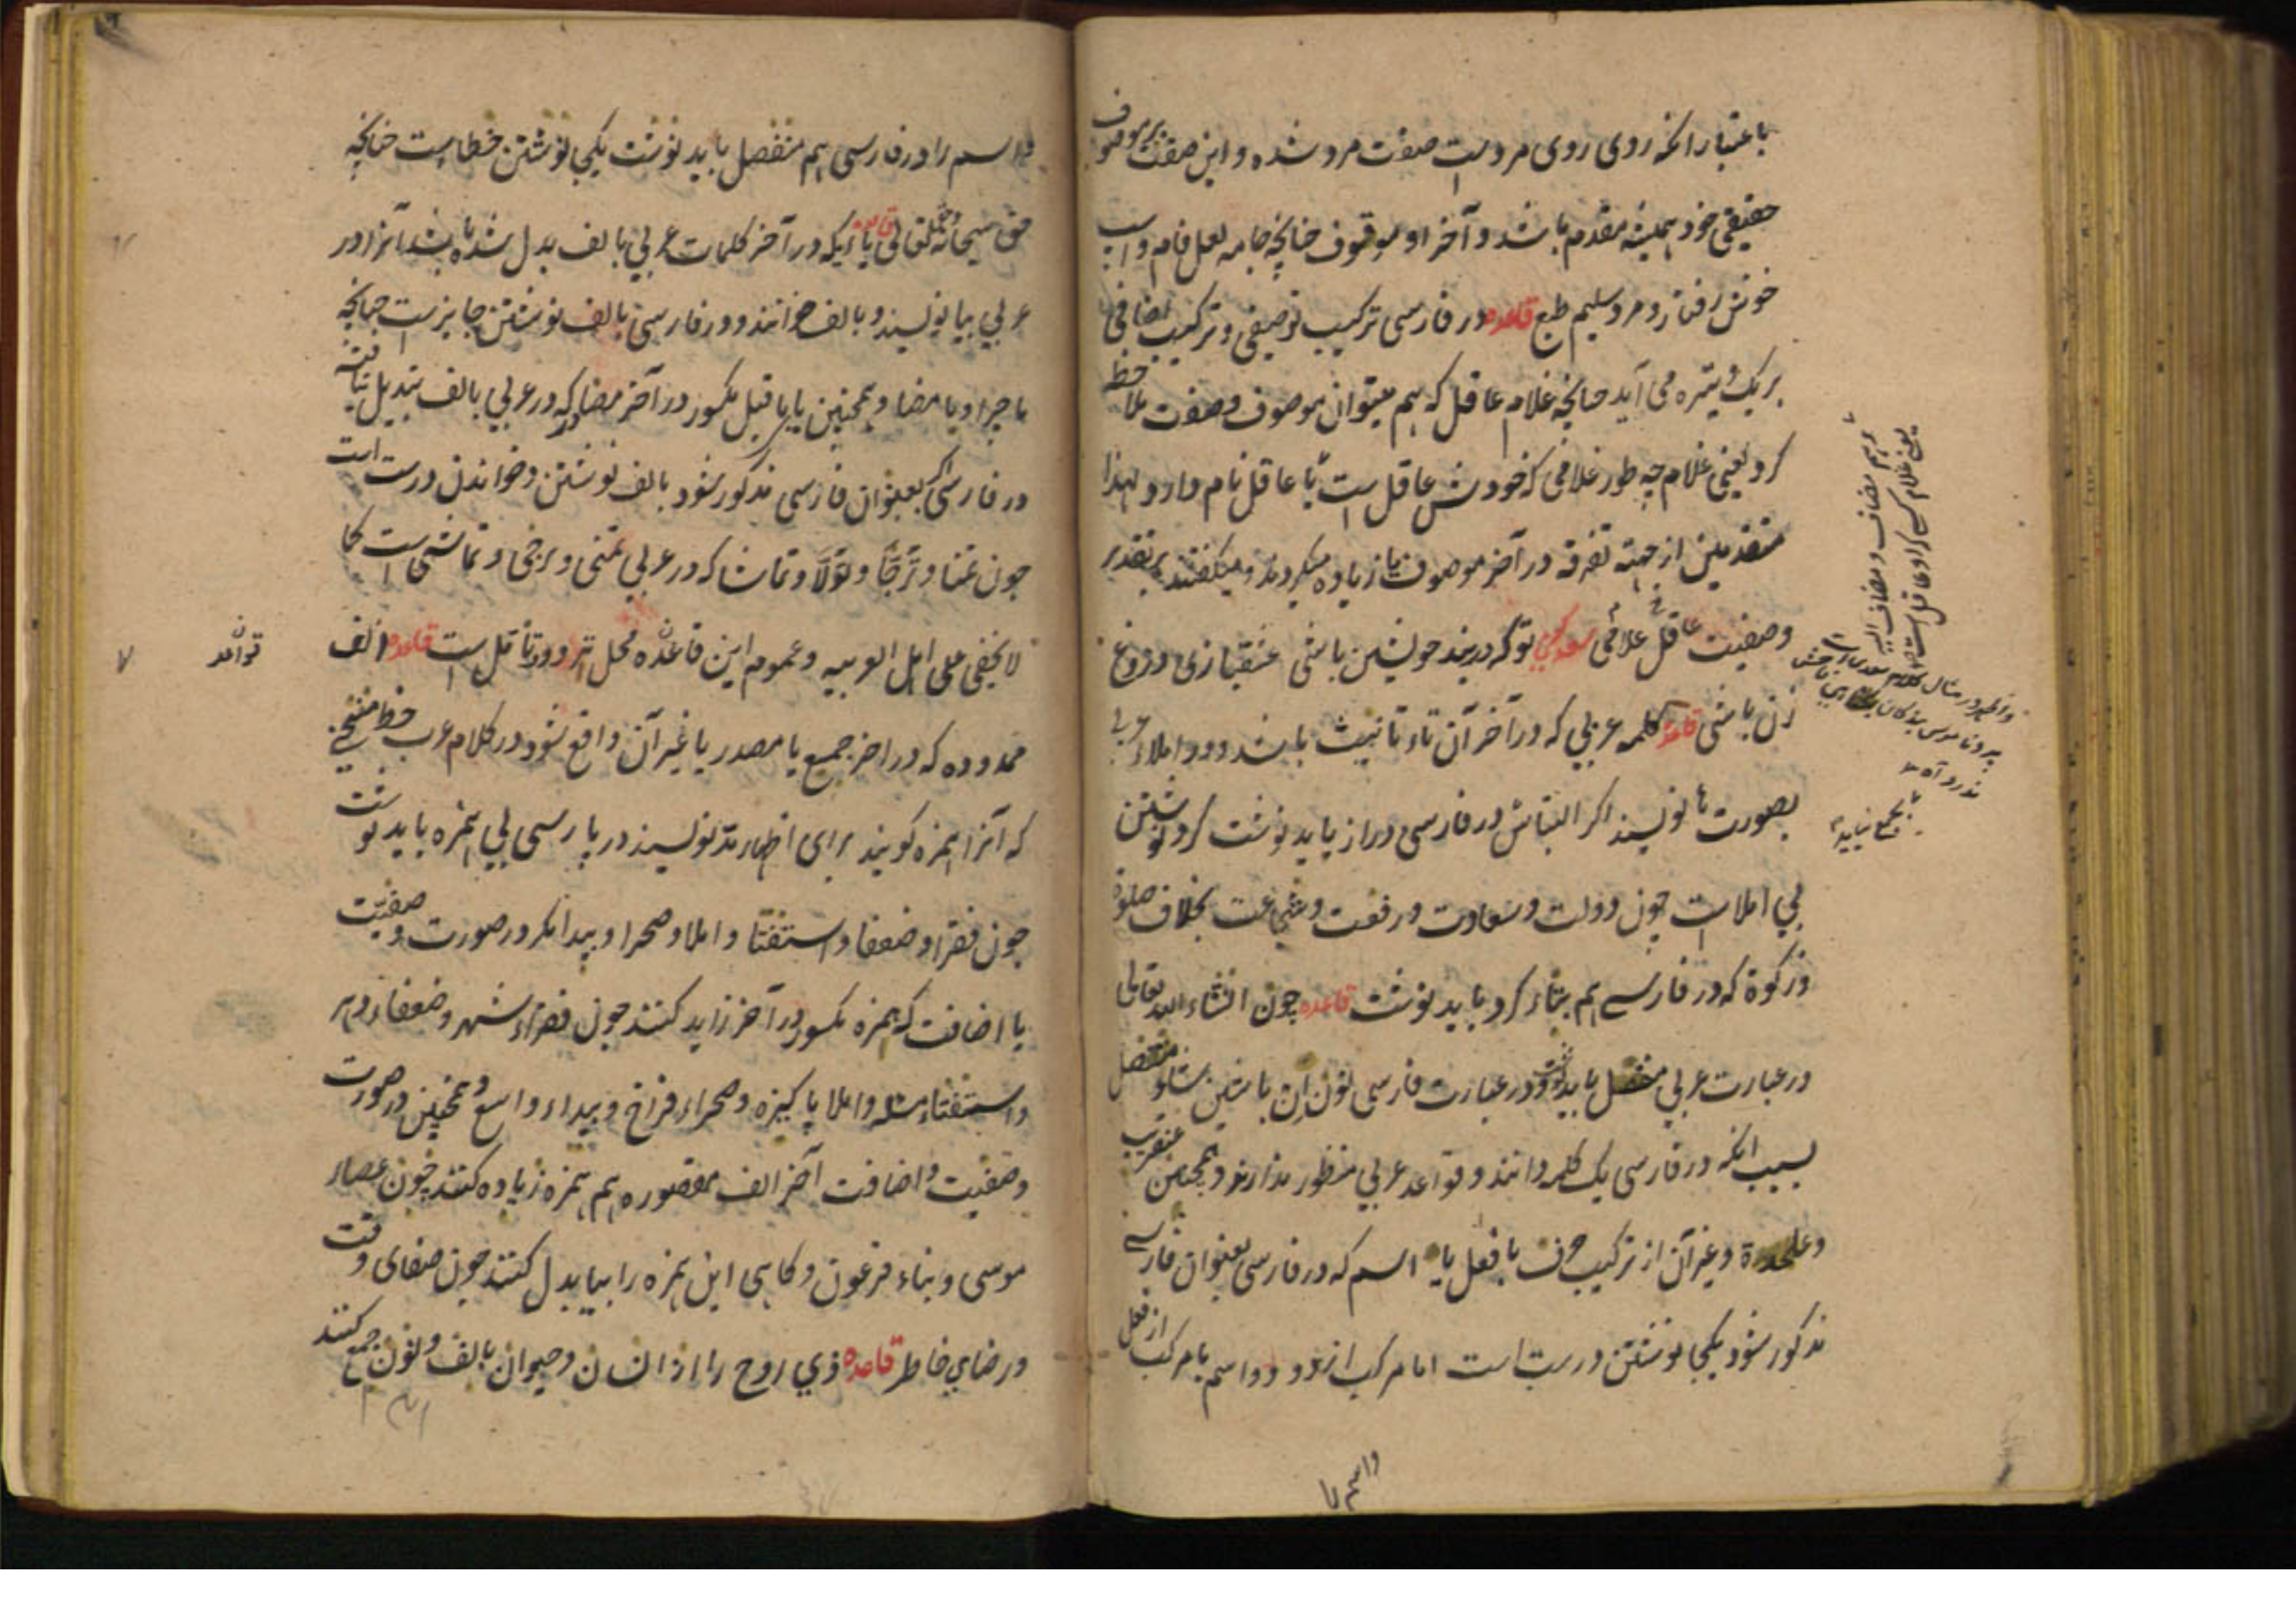 باعتبار انکه روی روی مردست صفت مرد شده و این صفت بر موصوف
حقیقی خود همیشه مقدم باشد و آخر او موقوف چنانچه جامه لعل فام و اسپ
خوش رفتار و مرد سلیم طبع قاعده در فارسی ترکیب توصیفی و ترکیب اضافی
بر یک وتیره می آید چنانچه غلام عاقل که هم میتوان موصوف و صفت ملاحظه
کرد یعنی غلام چه طور غلامی که خودش عاقل است یا عاقل نام دارد لهذا
متقدمین از جهته تفرقه در آخر موصوف یا زیاده میکردند و میگفتند بر تقدیر
وصفیت عاقل غلامی سعدی تو که در بند خویشتن باشی عشقبازی دروغ
زن باشی قاعده کلمه عربی که در آخر آن تاء تانیث باشد و در املاء عربی
بصورت ها نویسند اکثر التباس در فارسی دراز باید نوشت گرد نوشتن
بی املاست چون دولت و سعادت و رفعت و شجاعت بخلاف صلوة
و زکوة که در فارسے هم بتاء گرد باید نوشت قاعده چون انشاء الله تعالی
در عبارت عربی منفصل باید نوشت و در عبارت فارسی نون اِن با شین شاء متصل
بسبب انکه در فارسی یک کلمه دانند و قواعد عربی منظور ندارند و همچنین عنقریب
و علیحدة و غیر آن از ترکیب حرف با فعل یا اسم که در فارسی بعنوان فارسے
مذکور شود یکجا نوشتن درست است اما مرکب از دو اسم یا مرکب از فعل
واسم را
دو اسم مضاف و مضاف الیه
یعنی غلام کسے که او عاقل است
بجمع نیاید
و اسم را در فارسی هم منفصل باید نوشت یکجا نوشتن خطاست چنانچه
حق سبحانه و حقتعالی قاعده یائیکه در آخر کلمات عربی بالف بدل شده باشد آنرا در
عربی بیا نویسند و بالف خوانند و در فارسی بالف نوشتن جایزست چنانچه
ماجرا و یا مضا و همچنین یای ماقبل مکسور در آخر مصادر که در عربی بالف تبدیل نیافته
در فارسی اگر بعنوان فارسی مذکور شود بالف نوشتن و خواندن درست است
چون تمنا و ترجّا و تولّا و تماشا که در عربی تمنی و ترجی و تماشی است کما
لا یخفی علی اهل العربیه و عموم این قاعده محل تردد و تأمل است قاعده الف
قواعد
ممدوده که در اخر جمیع یا مصدر یا غیر آن واقع شود در کلام عرب خط منحنی
که آنرا همزه گویند برای اظهار مدّ نویسند در پارسی بی همزه باید نوشت
چون فقرا و ضعفا و استفتا و املا و صحرا و بیدا مگر در صورت وصفیت
یا اضافت که همزه مکسور در آخر زاید کنند چون فقراء شهر و ضعفاء دهر
و استفتاء مسئله و املا پاکیزه و صحراء فراخ و بیداء واسع و همچنین در صورت
وصفیت و اضافت آخر الف مقصوره هم همزه زیاده کنند چون عصاء
موسی و بناء فرعون و گاهی این همزه را بیا بدل کنند چون صفای وقت
و رضای خاطر قاعده ذی روح را از انسان و حیوان بالف و نون جمع کنند